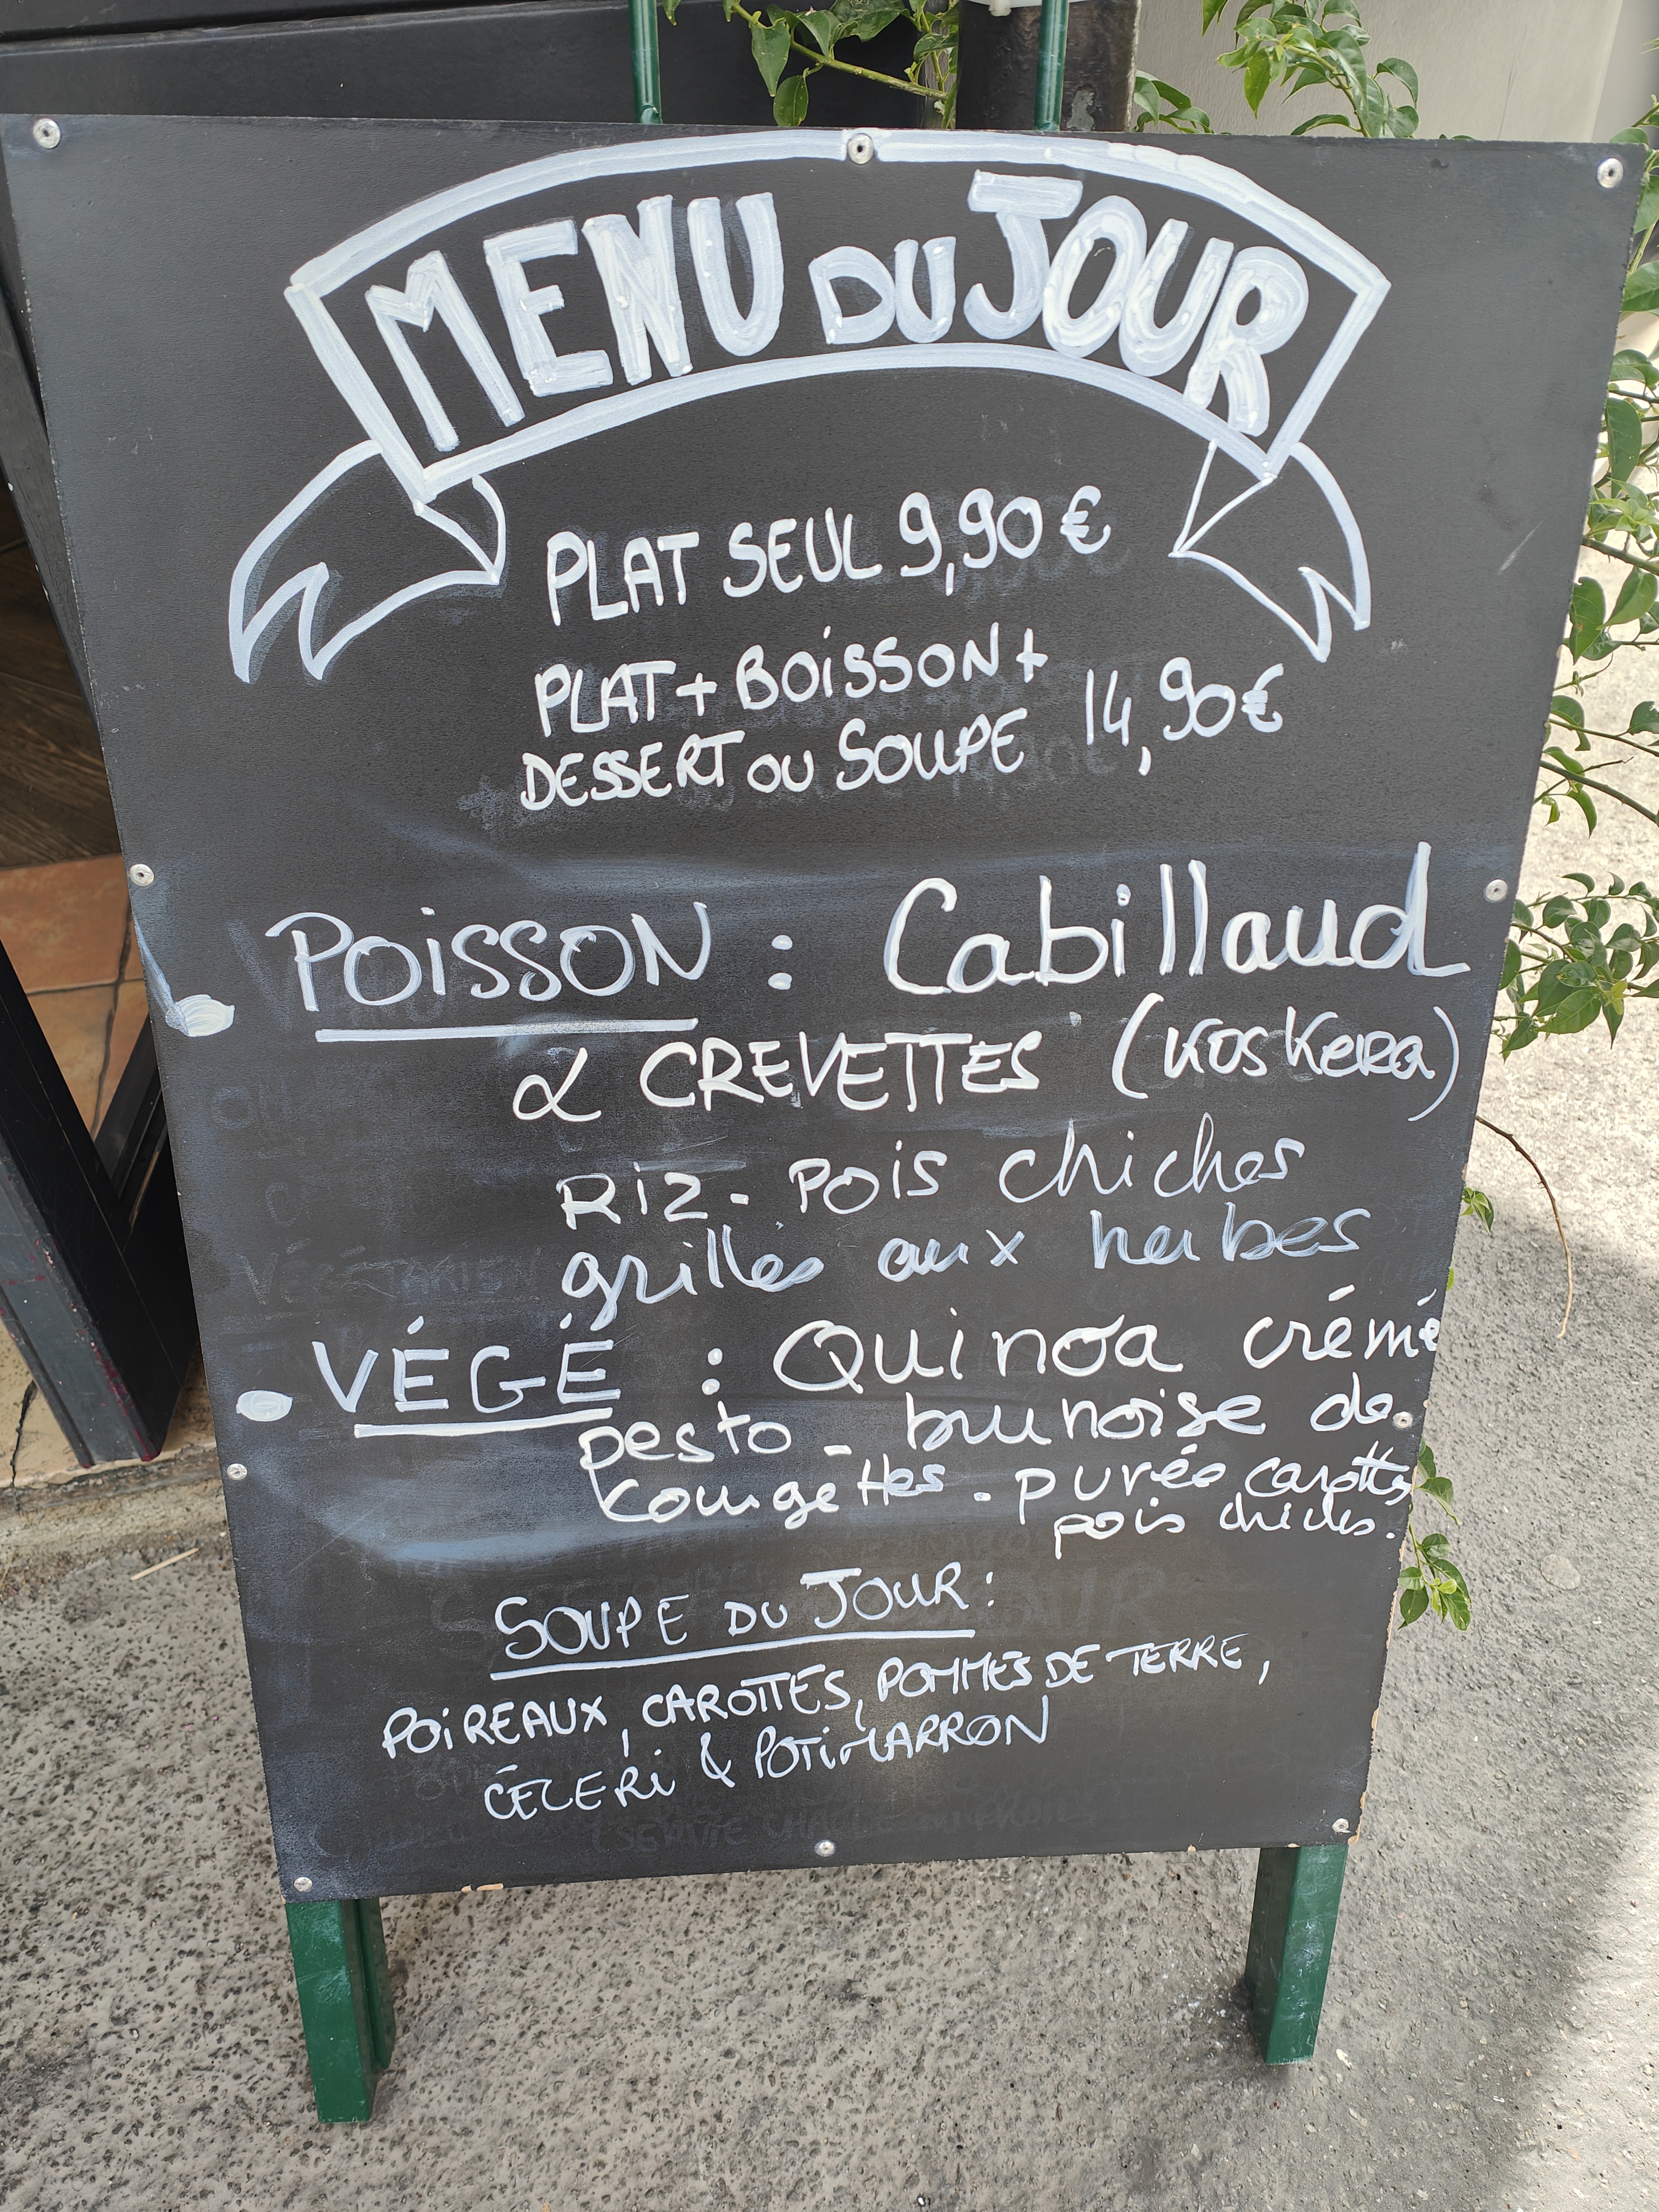 MENU DU JOUR
PLAT SEUL 9,90 €
PLAT + BOISSON +
DESSERT OU SOUPE 14,90€
POISSON : Cabillaud
& CREVETTES (KosKera)
Riz - Pois chiches
grillés aux herbes
VÉGÉ : Quinoa crémé
pesto - brunoise de
courgettes - purée carottes
pois chiches.
SOUPE DU JOUR :
POIREAUX, CAROTTES, POMMES DE TERRE,
CÉLERI & POTIMARRON